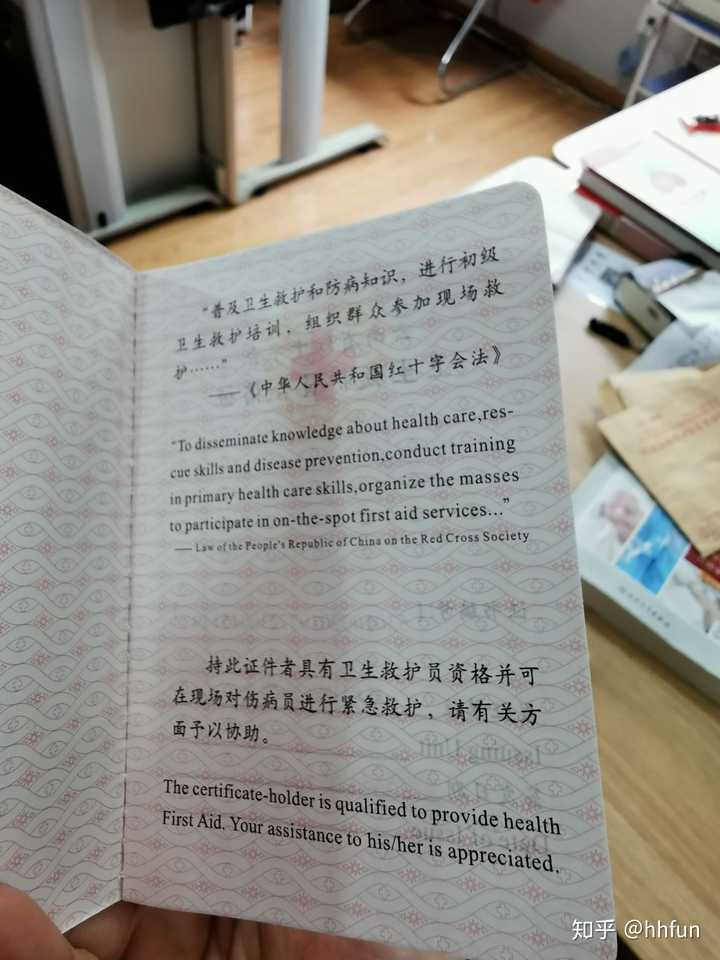 “普及卫生救护和防病知识，进行初级
卫生救护培训，组织群众参加现场救
护……”
——《中华人民共和国红十字会法》
“To disseminate knowledge about health care,res-
cue skills and disease prevention,conduct training
in primary health care skills,organize the masses
to participate in on-the-spot first aid services...”
— Law of the People's Republic of China on the Red Cross Society
持此证件者具有卫生救护员资格并可
在现场对伤病员进行紧急救护，请有关方
面予以协助。
The certificate-holder is qualified to provide health
First Aid. Your assistance to his/her is appreciated.
知乎 @hhfun